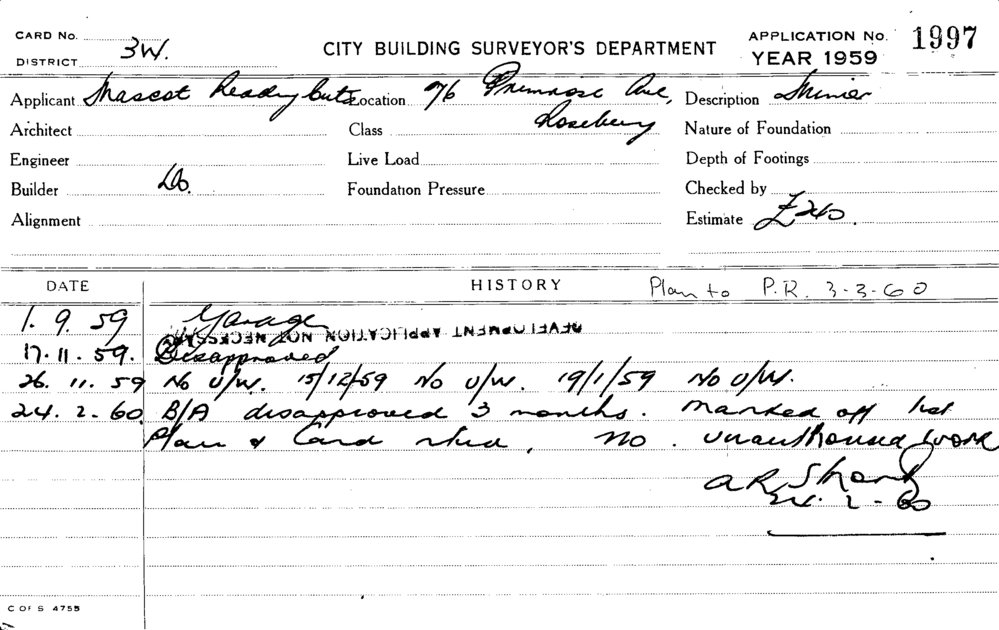 CARD No.
DISTRICT 3W.
CITY BUILDING SURVEYOR'S DEPARTMENT
APPLICATION No. 1997
YEAR 1959
Applicant Mascot Ready Cuts Location 76 Primrose Ave, Rosebery Description Minier
Architect Class Nature of Foundation
Engineer Live Load Depth of Footings
Builder Do. Foundation Pressure Checked by
Alignment Estimate £240.
DATE HISTORY Plan to P.R. 3-3-60
1. 9. 59 Garage
DEVELOPMENT APPLICATION NOT NECESSARY
17. 11. 59. Disapproved
26. 11. 59 No U/W. 15/12/59 No U/W. 19/1/59 No U/W.
24. 2. 60 B/A disapproved 3 months. Marked off list
Plan & Card rtrd, no. unauthorised work
24. 2 - 60
C OF S 4755